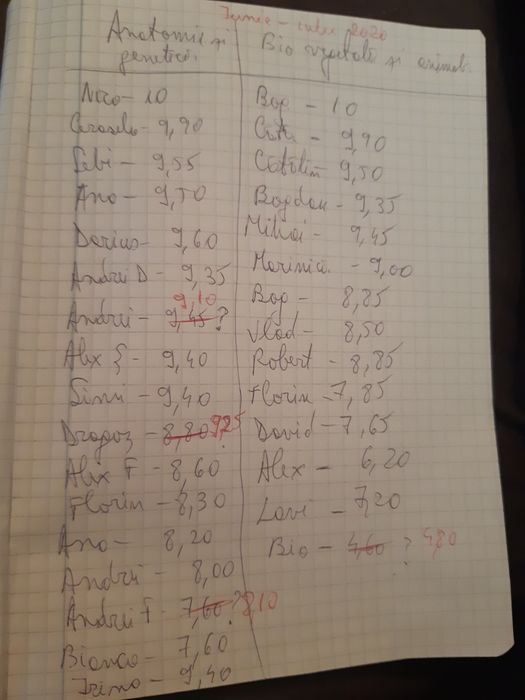 Iunie - iulie 2020
Anatomie și genetică
Nico - 10
9,90
Sebi - 9,55
Ana - 9,70
Darius - 9,60
Andrei D - 9,35
9,10
Andrei - 9,45 ?
Alex Ș - 9,40
Simi - 9,40
Dragoș - 8,80 9,25
Alex T - 8,60
Florin - 8,30
Ana - 8,20
Andrei - 8,00
Andrei T - 7,60 ? 8,10
Bianca - 7,60
Irina - 9,40
Bio vegetală și animală
Bog - 10
9,90
Cătălin - 9,50
Bogdan - 9,35
Mihai - 9,45
Marinica - 9,00
Bog - 8,85
Vlad - 8,50
Robert - 8,85
Florin - 7,85
David - 7,65
Alex - 6,20
Lavi - 7,20
Bio - 4,60 ? 4,80